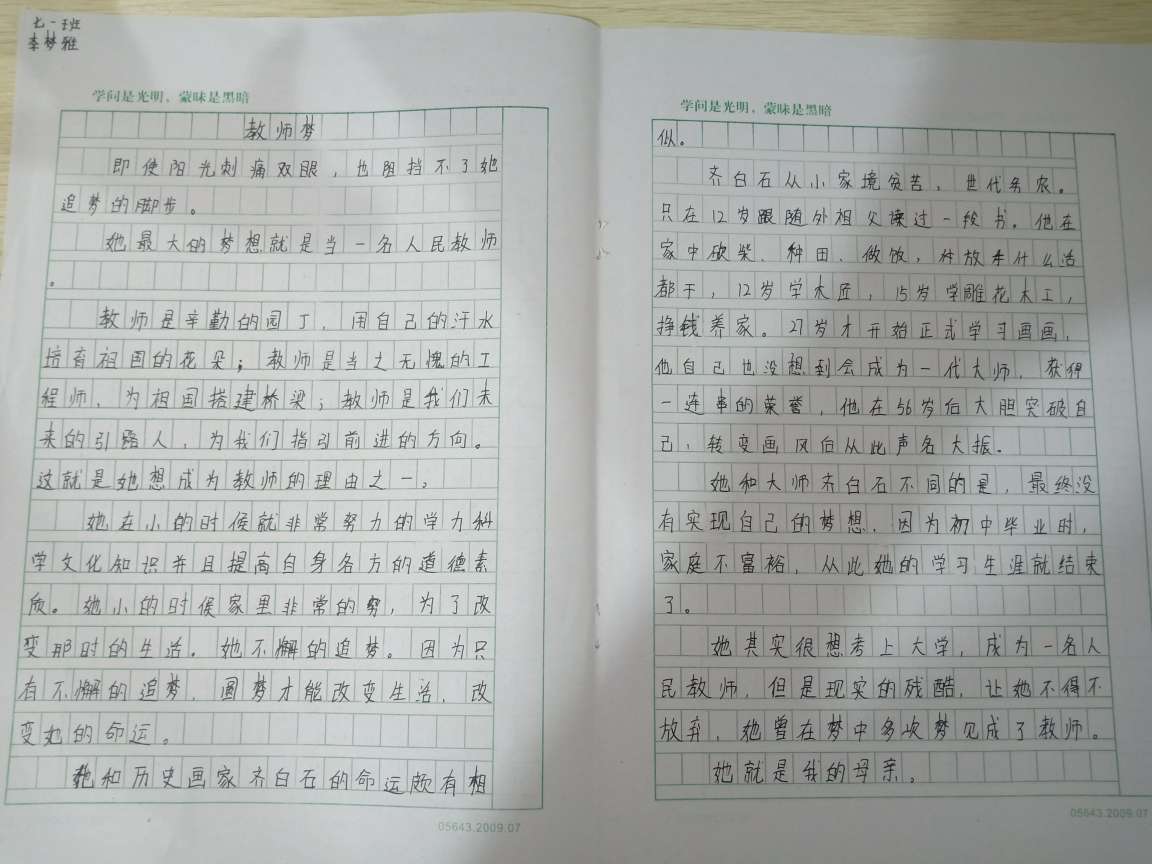 七一班
李梦雅
学问是光明、蒙昧是黑暗
教师梦
即使阳光刺痛双眼，也阻挡不了她
追梦的脚步。
她最大的梦想就是当一名人民教师
。
教师是辛勤的园丁，用自己的汗水
培育祖国的花朵；教师是当之无愧的工
程师，为祖国搭建桥梁；教师是我们未
来的引路人，为我们指引前进的方向。
这就是她想成为教师的理由之一。
她在小的时候就非常努力的学力科
学文化知识并且提高自身各方的道德素
质。她小的时候家里非常的穷，为了改
变那时的生活。她不懈的追梦。因为只
有不懈的追梦，圆梦才能改变生活，改
变她的命运。
她和历史画家齐白石的命运颇有相
05643.2009.07
学问是光明、蒙昧是黑暗
似。
齐白石从小家境贫苦，世代务农。
只在12岁跟随外祖父读过一段书。他在
家中砍柴、种田、做饭，放牛什么活
都干，12岁学木匠，15岁学雕花木工，
挣钱养家。27岁才开始正式学习画画，
他自己也没想到会成为一代大师，获得
一连串的荣誉，他在56岁后大胆突破自
己，转变画风后从此声名大振。
她和大师齐白石不同的是，最终没
有实现自己的梦想，因为初中毕业时，
家庭不富裕，从此她的学习生涯就结束
了。
她其实很想考上大学，成为一名人
民教师，但是现实的残酷，让她不得不
放弃，她曾在梦中多次梦见成了教师。
她就是我的母亲。
05643.2009.07